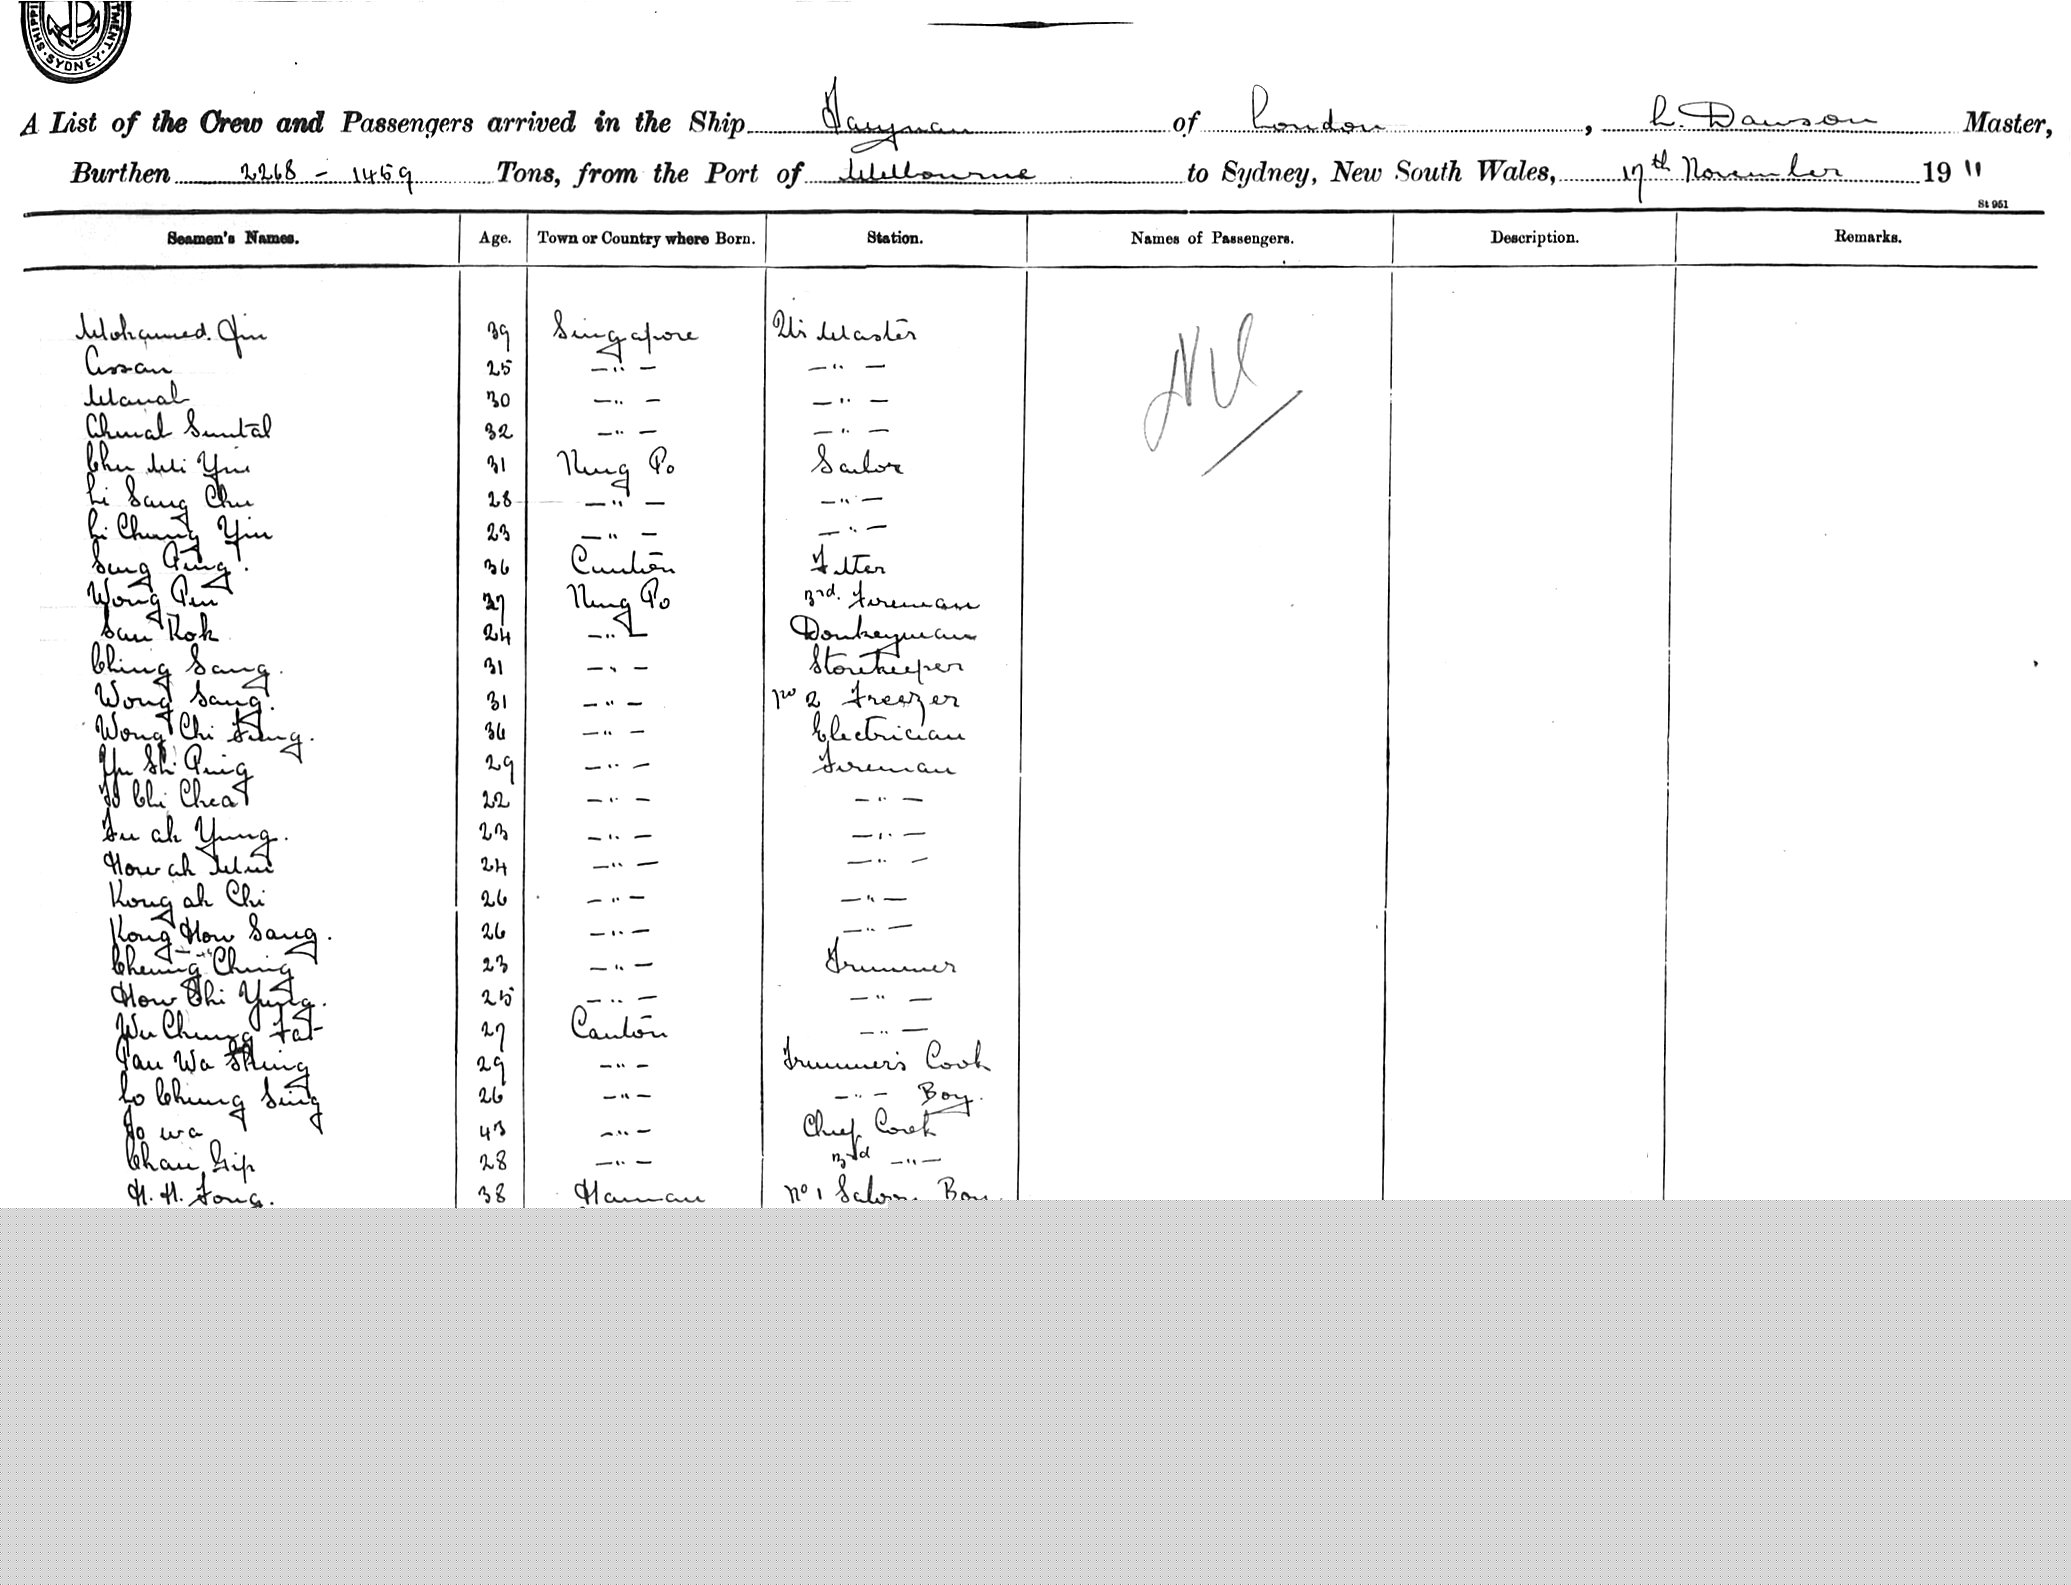 SHIPPI TMENT. SYDNEY
A List of the Crew and Passengers arrived in the Ship Taiyuan of London, L. Dawson Master,
Burthen 2268 - 1459 Tons, from the Port of Melbourne to Sydney, New South Wales, 17th November 1911
St 951
Seamen's Names. Age. Town or Country where Born. Station. Names of Passengers. Description. Remarks.
Mohamed 39 Singapore Master Nil
Assan 25 —"— —"—
30 —"— —"—
32 —"— —"—
Chu Mi Yin 31 Ning Po Sailor
Li Sang Chu 28 —"— —"—
Li Chung Yin 23 —"— —"—
Sung Ping. 36 Canton Fitter
Wong Pin 37 Ning Po 3rd. Fireman
San Kok 24 —"— Donkeyman
Ching Sang. 31 —"— Storekeeper
Wong Sang. 31 —"— No 2 Freezer
Wong Chi Fung. 36 —"— Electrician
Yu Shi Ping 29 —"— Fireman
Chi Cheat 22 —"— —"—
Fu ah Yung. 23 —"— —"—
How ah Min 24 —"— —"—
Kong ah Chi 26 —"— —"—
Kong How Sang. 26 —"— —"—
Cheung Ching 23 —"— Trimmer
How Chi Yung. 25 —"— —"—
Wu Chung Fat 27 Canton —"—
Pau Wa Shing 29 —"— Trimmer's Cook
Lo Chung Sing 26 —"— —"— Boy.
Jo wa 43 —"— Chief Cook
Chan Gip 28 —"— 3rd —"—
H. H. Fong. 38 Hainan No 1 Saloon Boy.